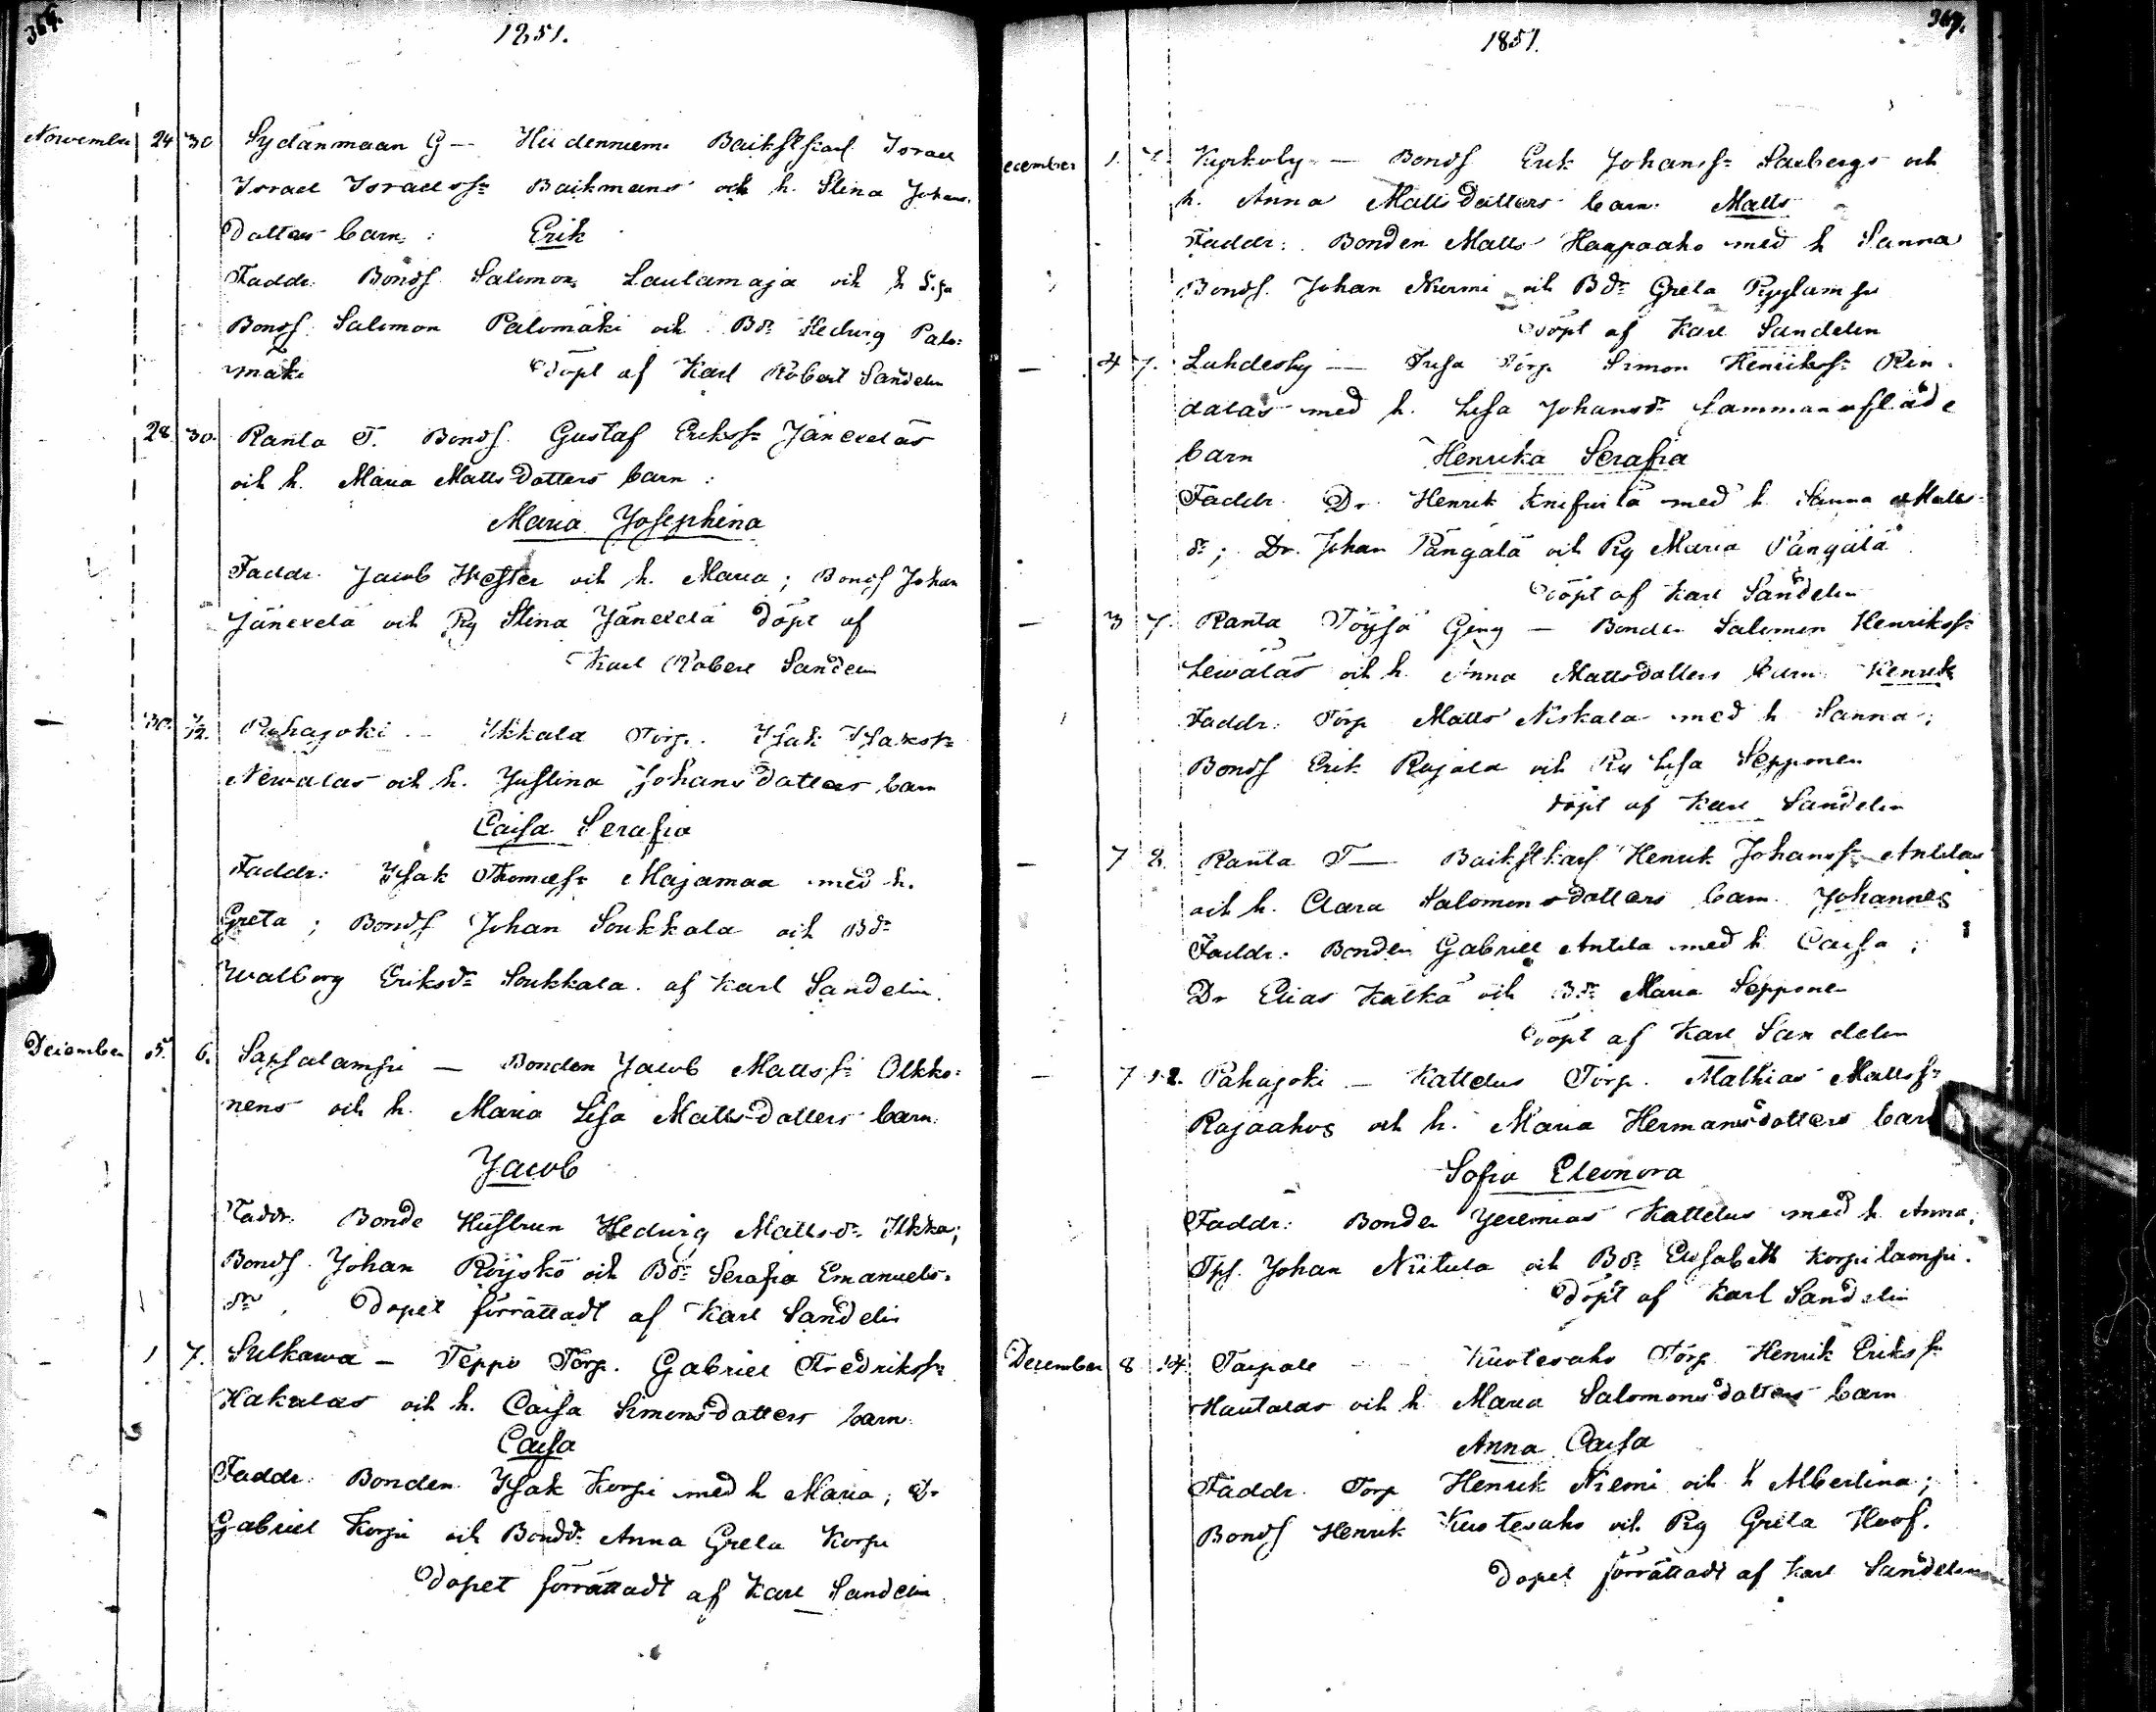 366.
1851.
November 24 30 Sydänmaan G — Hiidenniemi Backstkarl Israel
Israel Israelss: Backmans och h. Stina Johans
dotters barn: Erik
Faddr. Bonds. Salomon Lautamaja och h Lisa
Bonds. Salomon Palomäki och Bdr Hedvig Palo=
mäki döpt af Karl Robert Sandelin
28 30. Ranta T. Bonds. Gustaf Erikss: Jänexeläs
och h. Maria Mattsdotters barn:
Maria Josephina
Faddr. Jacob Wester och h. Maria; Bonds Johan
Jänexelä och Pg Stina Jänexelä döpt af
Karl Robert Sandelin
— 30. 7/12. Pahajoki — Ikkala Torp. Isak Isakss:
Newalas och h. Justina Johansdotters barn
Caisa Serafia
Faddr: Isak Thomass: Majamaa med h.
Greta; Bonds Johan Soukkala och Bdr
Walborg Eriksdr Soukkala. af Karl Sandelin.
December 5. 6. Sapsalampi — Bonden Jacob Matts S: Olkko=
nens och h. Maria Lisa Mattsdotters barn:
Jacob
Faddr. Bonde Hustrun Hedvig Mattsdr. Ilkka;
Bonds. Johan Röyskö och Bdr Serafia Emanuels=
dr, Dopet förrättadt af Karl Sandelin
— 1 7. Sulkawa — Teppo Torp. Gabriel Fredrikss:
Hakalas och h. Caisa Simonsdotters barn:
Caisa
Faddr. Bonden Isak Korpi med h Maria; Dr
Gabriel Korpi och Bondd: Anna Greta Korpi
Dopet förrättadt af Karl Sandelin.
367.
1851.
ecember 1. 7. Kyrkoby — Bonds Erik Johanss: Saxbergs och
h. Anna Mattsdotters barn: Matts
Faddr: Bonden Matts Haapaaho med h Sanna
Bonds. Johan Nurmi och Bdr Greta Pyylampi
döpt af Karl Sandelin
— 4 7. Lahdesby — Torp Simon Henrikss: Rin
dalas med h. Lisa Johansdr
barn Henrika Serafia
Faddr. Dr. Henrik Knifsilä med h. Sanna Matts
dr; Dr. Johan Pängälä och Pg Maria Pängälä
döpt af Karl Sandelin
— 3 7. Ranta Töysä Gäng — Bonden Salomon Henrikss:
Lewäläs och h. Anna Mattsdotters barn: Henrik
Faddr: Torp Matts Niskala med h Sanna;
Bonds Erik Rajala och Pg Lisa Sepponen
döpt af Karl Sandelin
— 7 8. Ranta T — Backstkarl Henrik Johanss: Anttilas
och h. Clara Salomonsdotters barn: Johannes
Faddr: Bonden Gabriel Antila med h Caisa;
Dr Elias Kätkä och Bdr: Maria Sepponen
döpt af Karl Sandelin
— 7 12. Pahajoki — Kattelus Torp. Mathias Mattss:
Rajaahos och h. Maria Hermansdotters barn
Sofia Eleonora
Faddr: Bonden Jeremias Kattelus med h Anna;
Tps. Johan Niitula och Bdr: Elisabeth Korpilampi.
döpt af Karl Sandelin
December 8 14. Taipale — Kuotesaho Torp Henrik Eriks S:
Hautalas och h Maria Salomonsdotters barn
Anna Caisa
Faddr. Torp Henrik Niemi och h Albertina;
Bonds Henrik Kuotesaho och Pg Greta Hoof.
Dopet förrättadt af Karl Sandelin